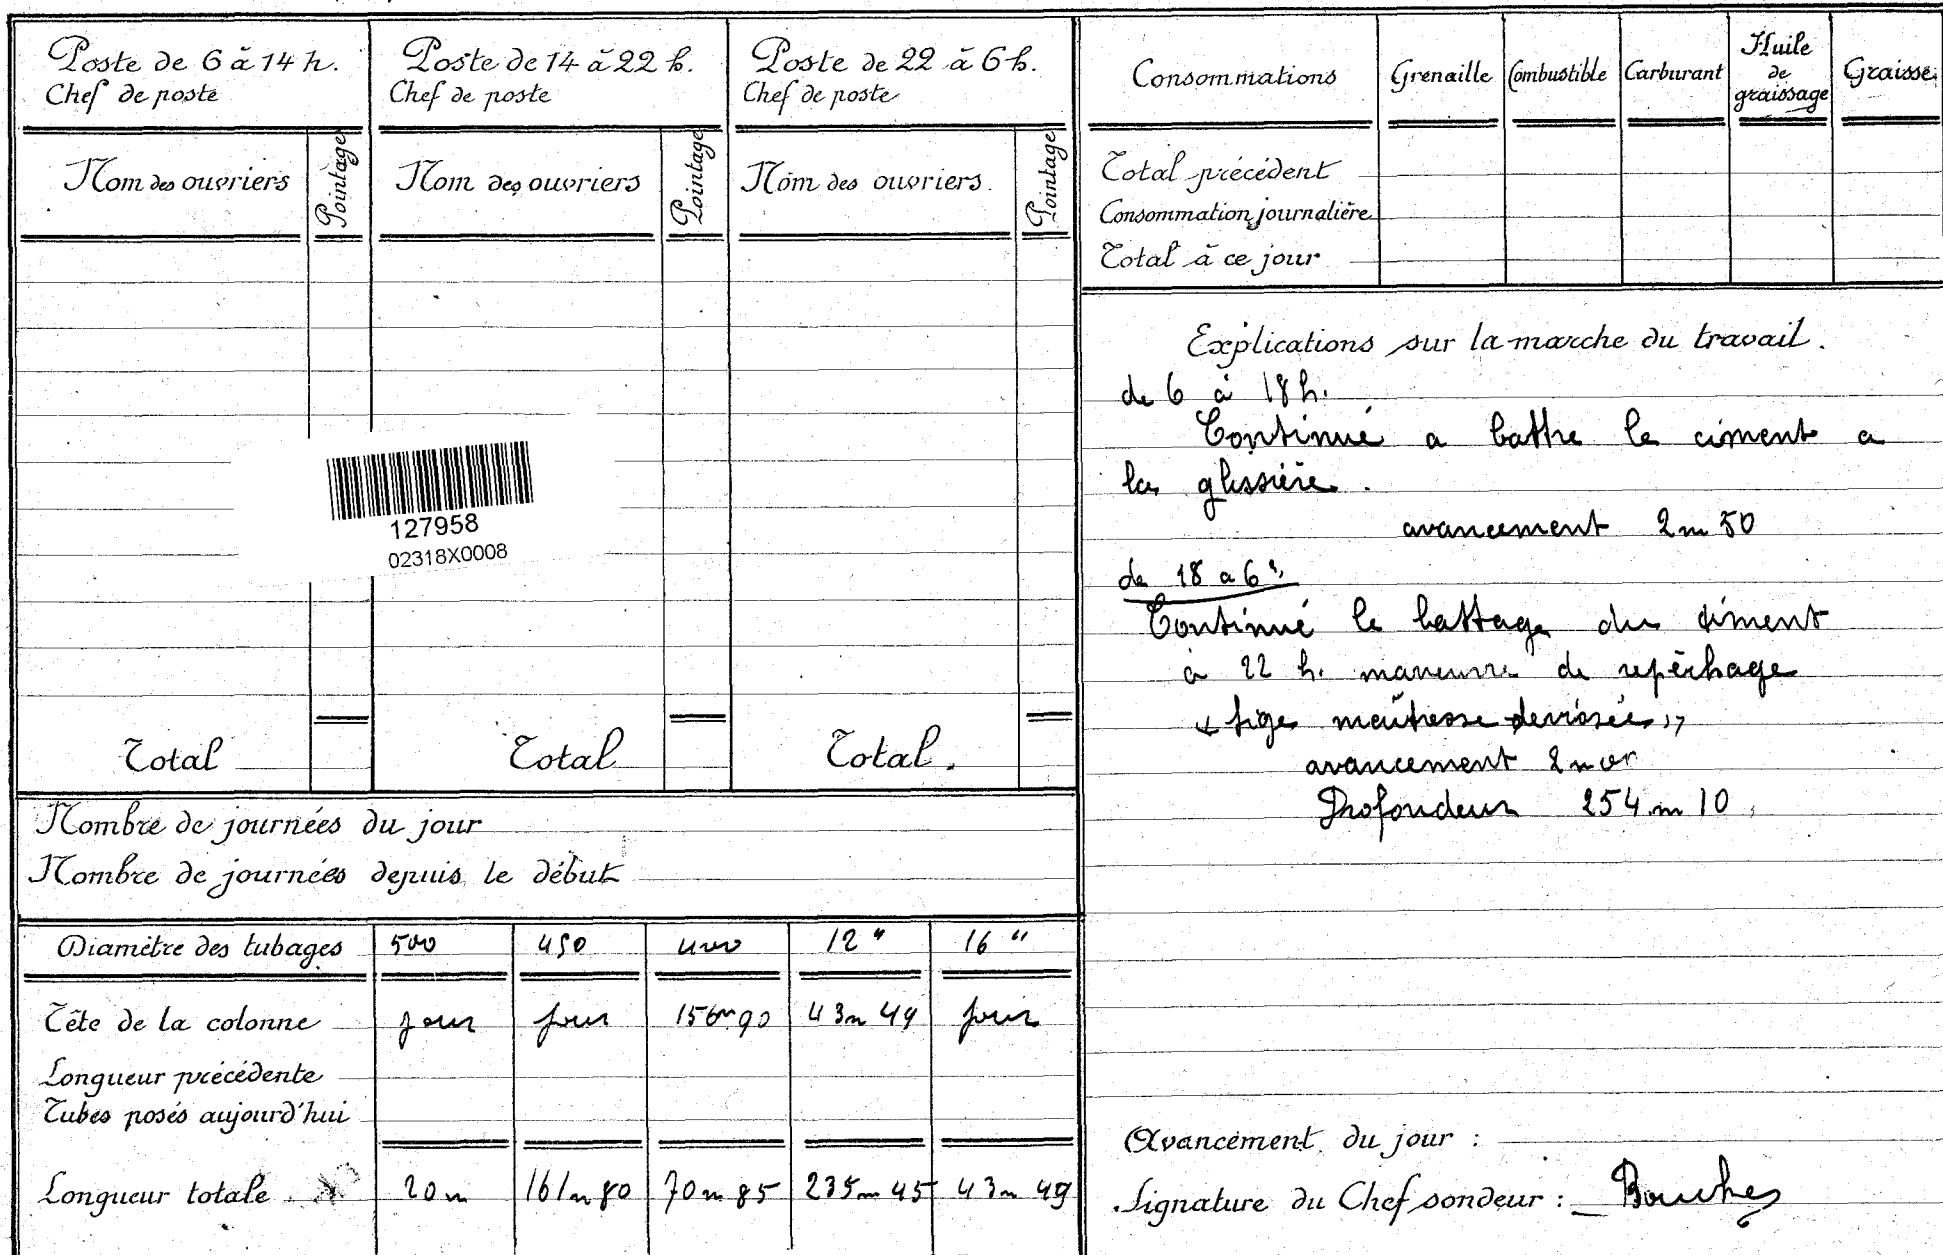 Poste de 6 à 14 h.
Chef de poste
Nom des ouvriers
Pointage
Total
Poste de 14 à 22 h.
Chef de poste
Nom des ouvriers
Pointage
Total
Poste de 22 à 6 h.
Chef de poste
Nom des ouvriers.
Pointage
Total.
127958
02318X0008
Nombre de journées du jour
Nombre de journées depuis le début
Diamètre des tubages 500 450 400 12" 16"
Tête de la colonne jour jour 156m90 43m49 jour
Longueur précédente
Tubes posés aujourd'hui
Longueur totale 20m 161m80 70m85 235m45 43m49
Consommations Grenaille Combustible Carburant Huile de graissage Graisse
Total précédent
Consommation journalière
Total à ce jour
Explications sur la marche du travail.
de 6 à 18 h.
Continué a battre le ciment a
la glissière.
avancement 2m50
de 18 a 6h
Continué le battage du ciment
à 22 h. maneuvre de repêchage
"tige maîtresse devissée"
avancement
Profondeur 254m10
Avancement du jour :
Signature du Chef sondeur :